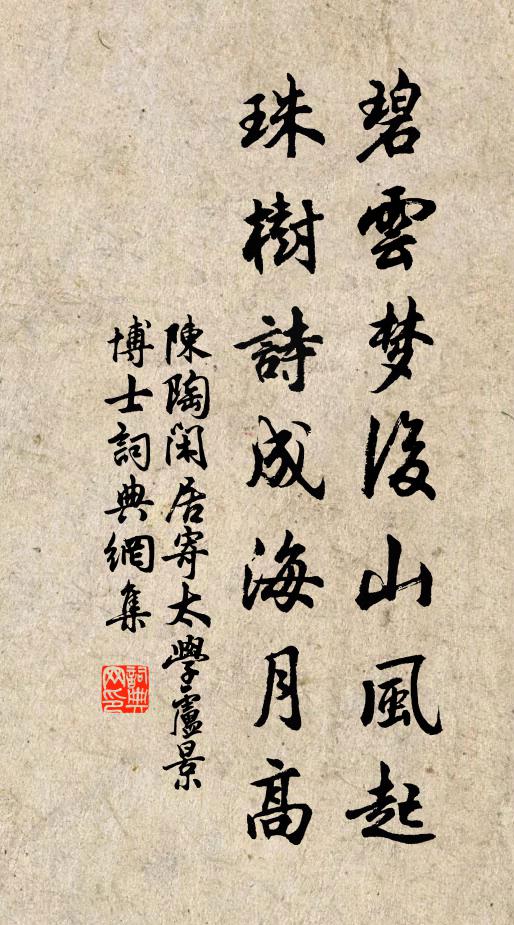 碧雲梦後山風起
珠樹詩成海月高
陳陶閑居寄太學盧景
博士詞典網集
詞典
网印